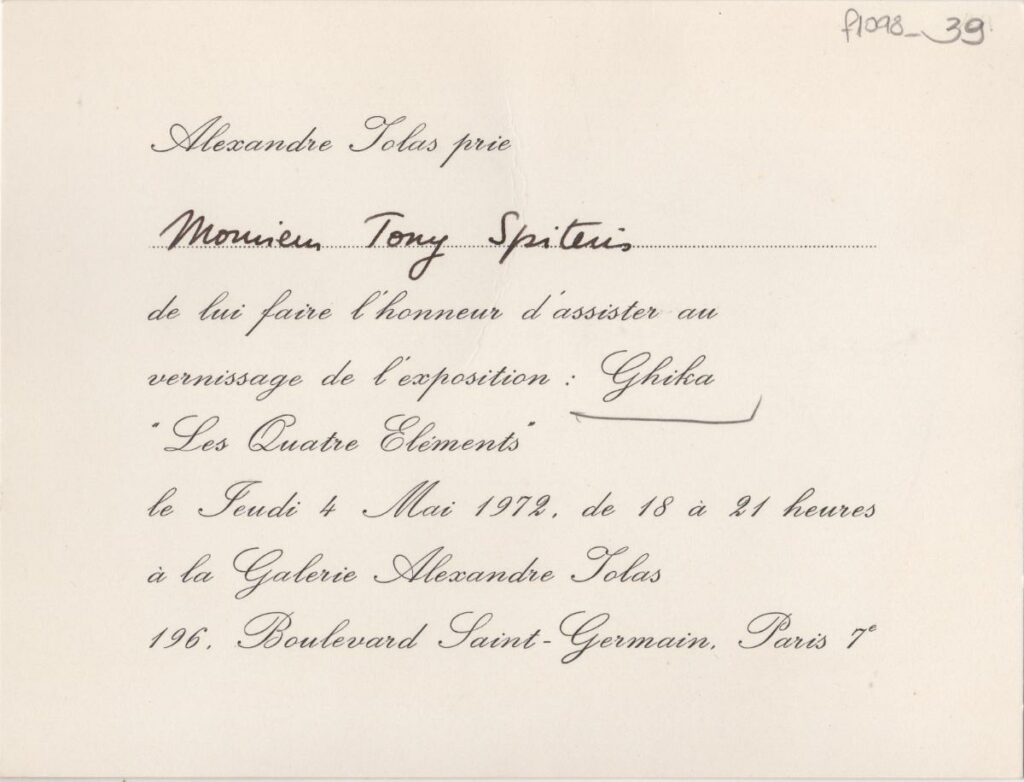 f1098_39
Alexandre Iolas prie
Monsieur Tony Spiteris
de lui faire l'honneur d'assister au
vernissage de l'exposition : Ghika
"Les Quatre Eléments"
le Jeudi 4 Mai 1972, de 18 à 21 heures
à la Galerie Alexandre Iolas
196, Boulevard Saint-Germain, Paris 7e